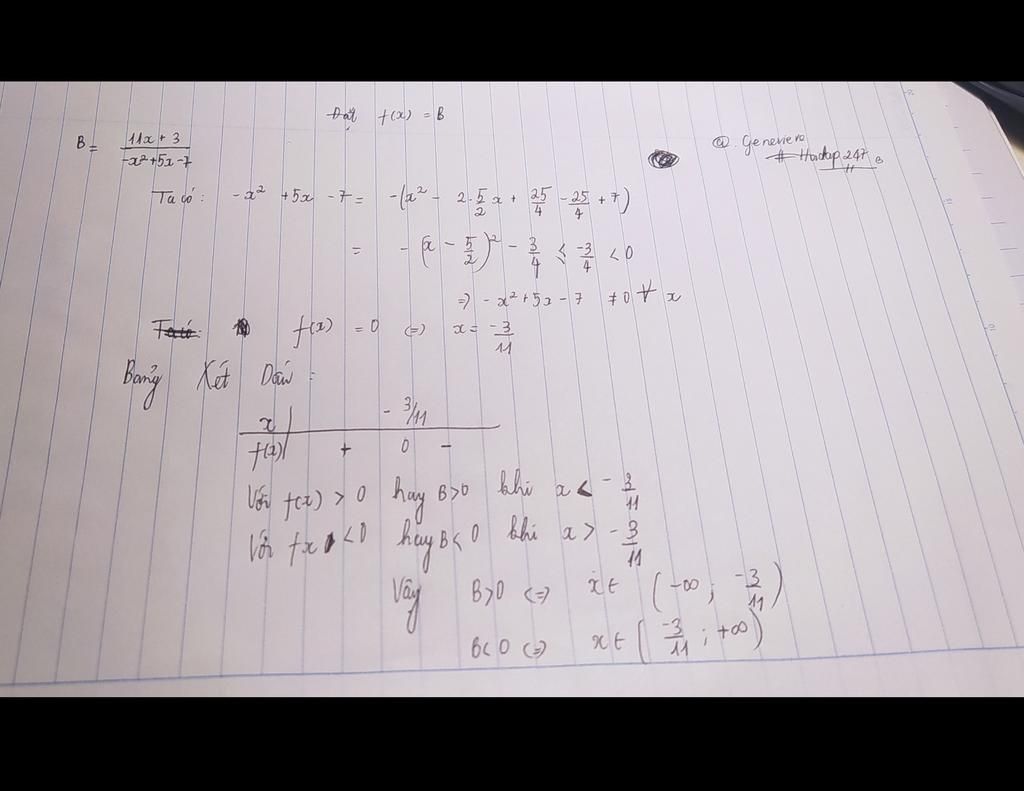 Đặt f(x) = B
B = (11x + 3)/(-x² + 5x - 7)
@. Geneviere
# Hoidap247
Ta có: -x² + 5x - 7 = -(x² - 2.5/2x + 25/4 - 25/4 + 7)
= -(x - 5/2)² - 3/4 ≤ -3/4 < 0
=> -x² + 5x - 7 ≠ 0 ∀ x
f(x) = 0 <=> x = -3/11
Bảng Xét Dấu :
x | - 3/11
f(x) | + 0 -
Với f(x) > 0 hay B>0 khi x < -3/11
Với fx < 0 hay B< 0 khi x > -3/11
Vây B>0 <=> x ∈ (-∞ ; -3/11)
B< 0 <=> x ∈ (-3/11 ; +∞)